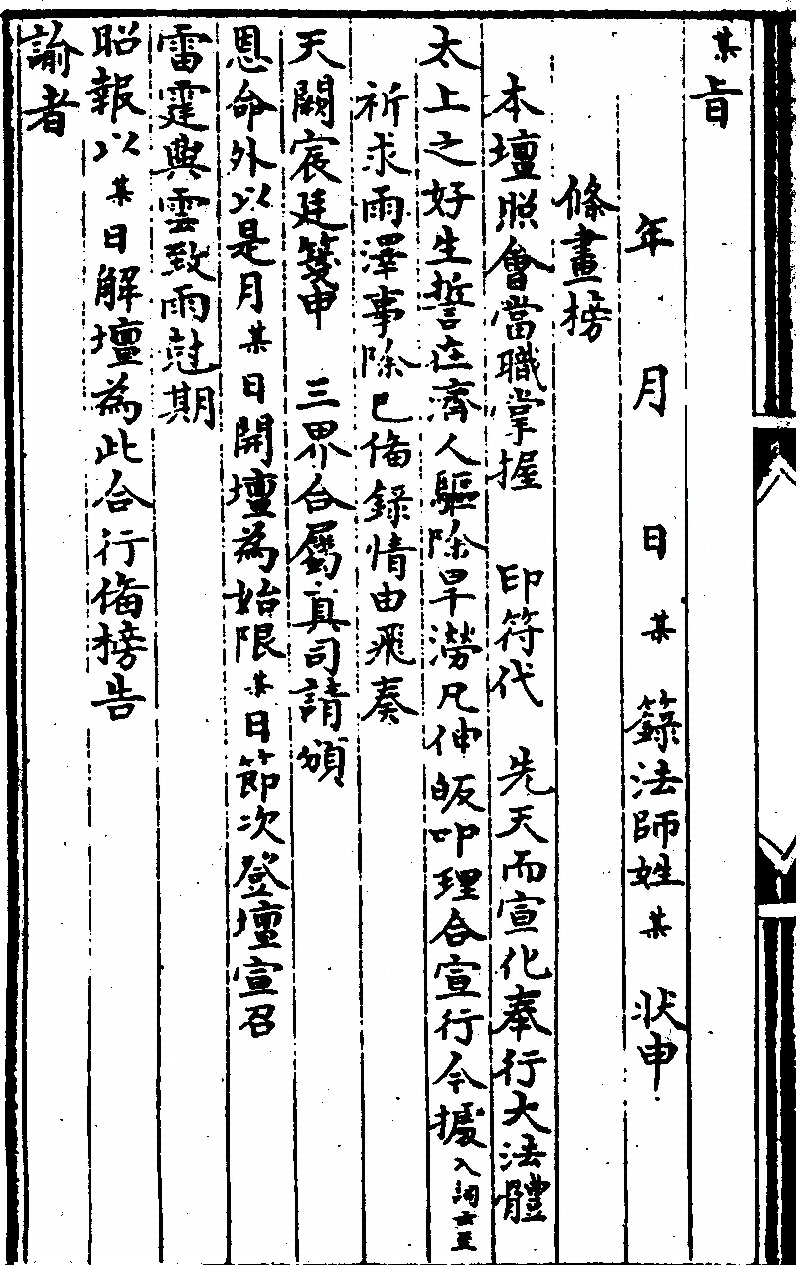 某旨
年 月 日某籙法師姓某 狀申
條畫榜
本壇照會當職掌握 印符代 先天而宣化奉行大法體
太上之好生誓在濟人驅除旱澇凡伸皈叩理合宣行今據入詞云至
祈求雨澤事除已偹錄情由飛奏
天闕宸廷箋申 三界合屬真司請頒
恩命外以是月某日開壇為始限某日節次登壇宣召
雷霆興雲致雨尅期
昭報以某日解壇為此合行偹榜告
諭者